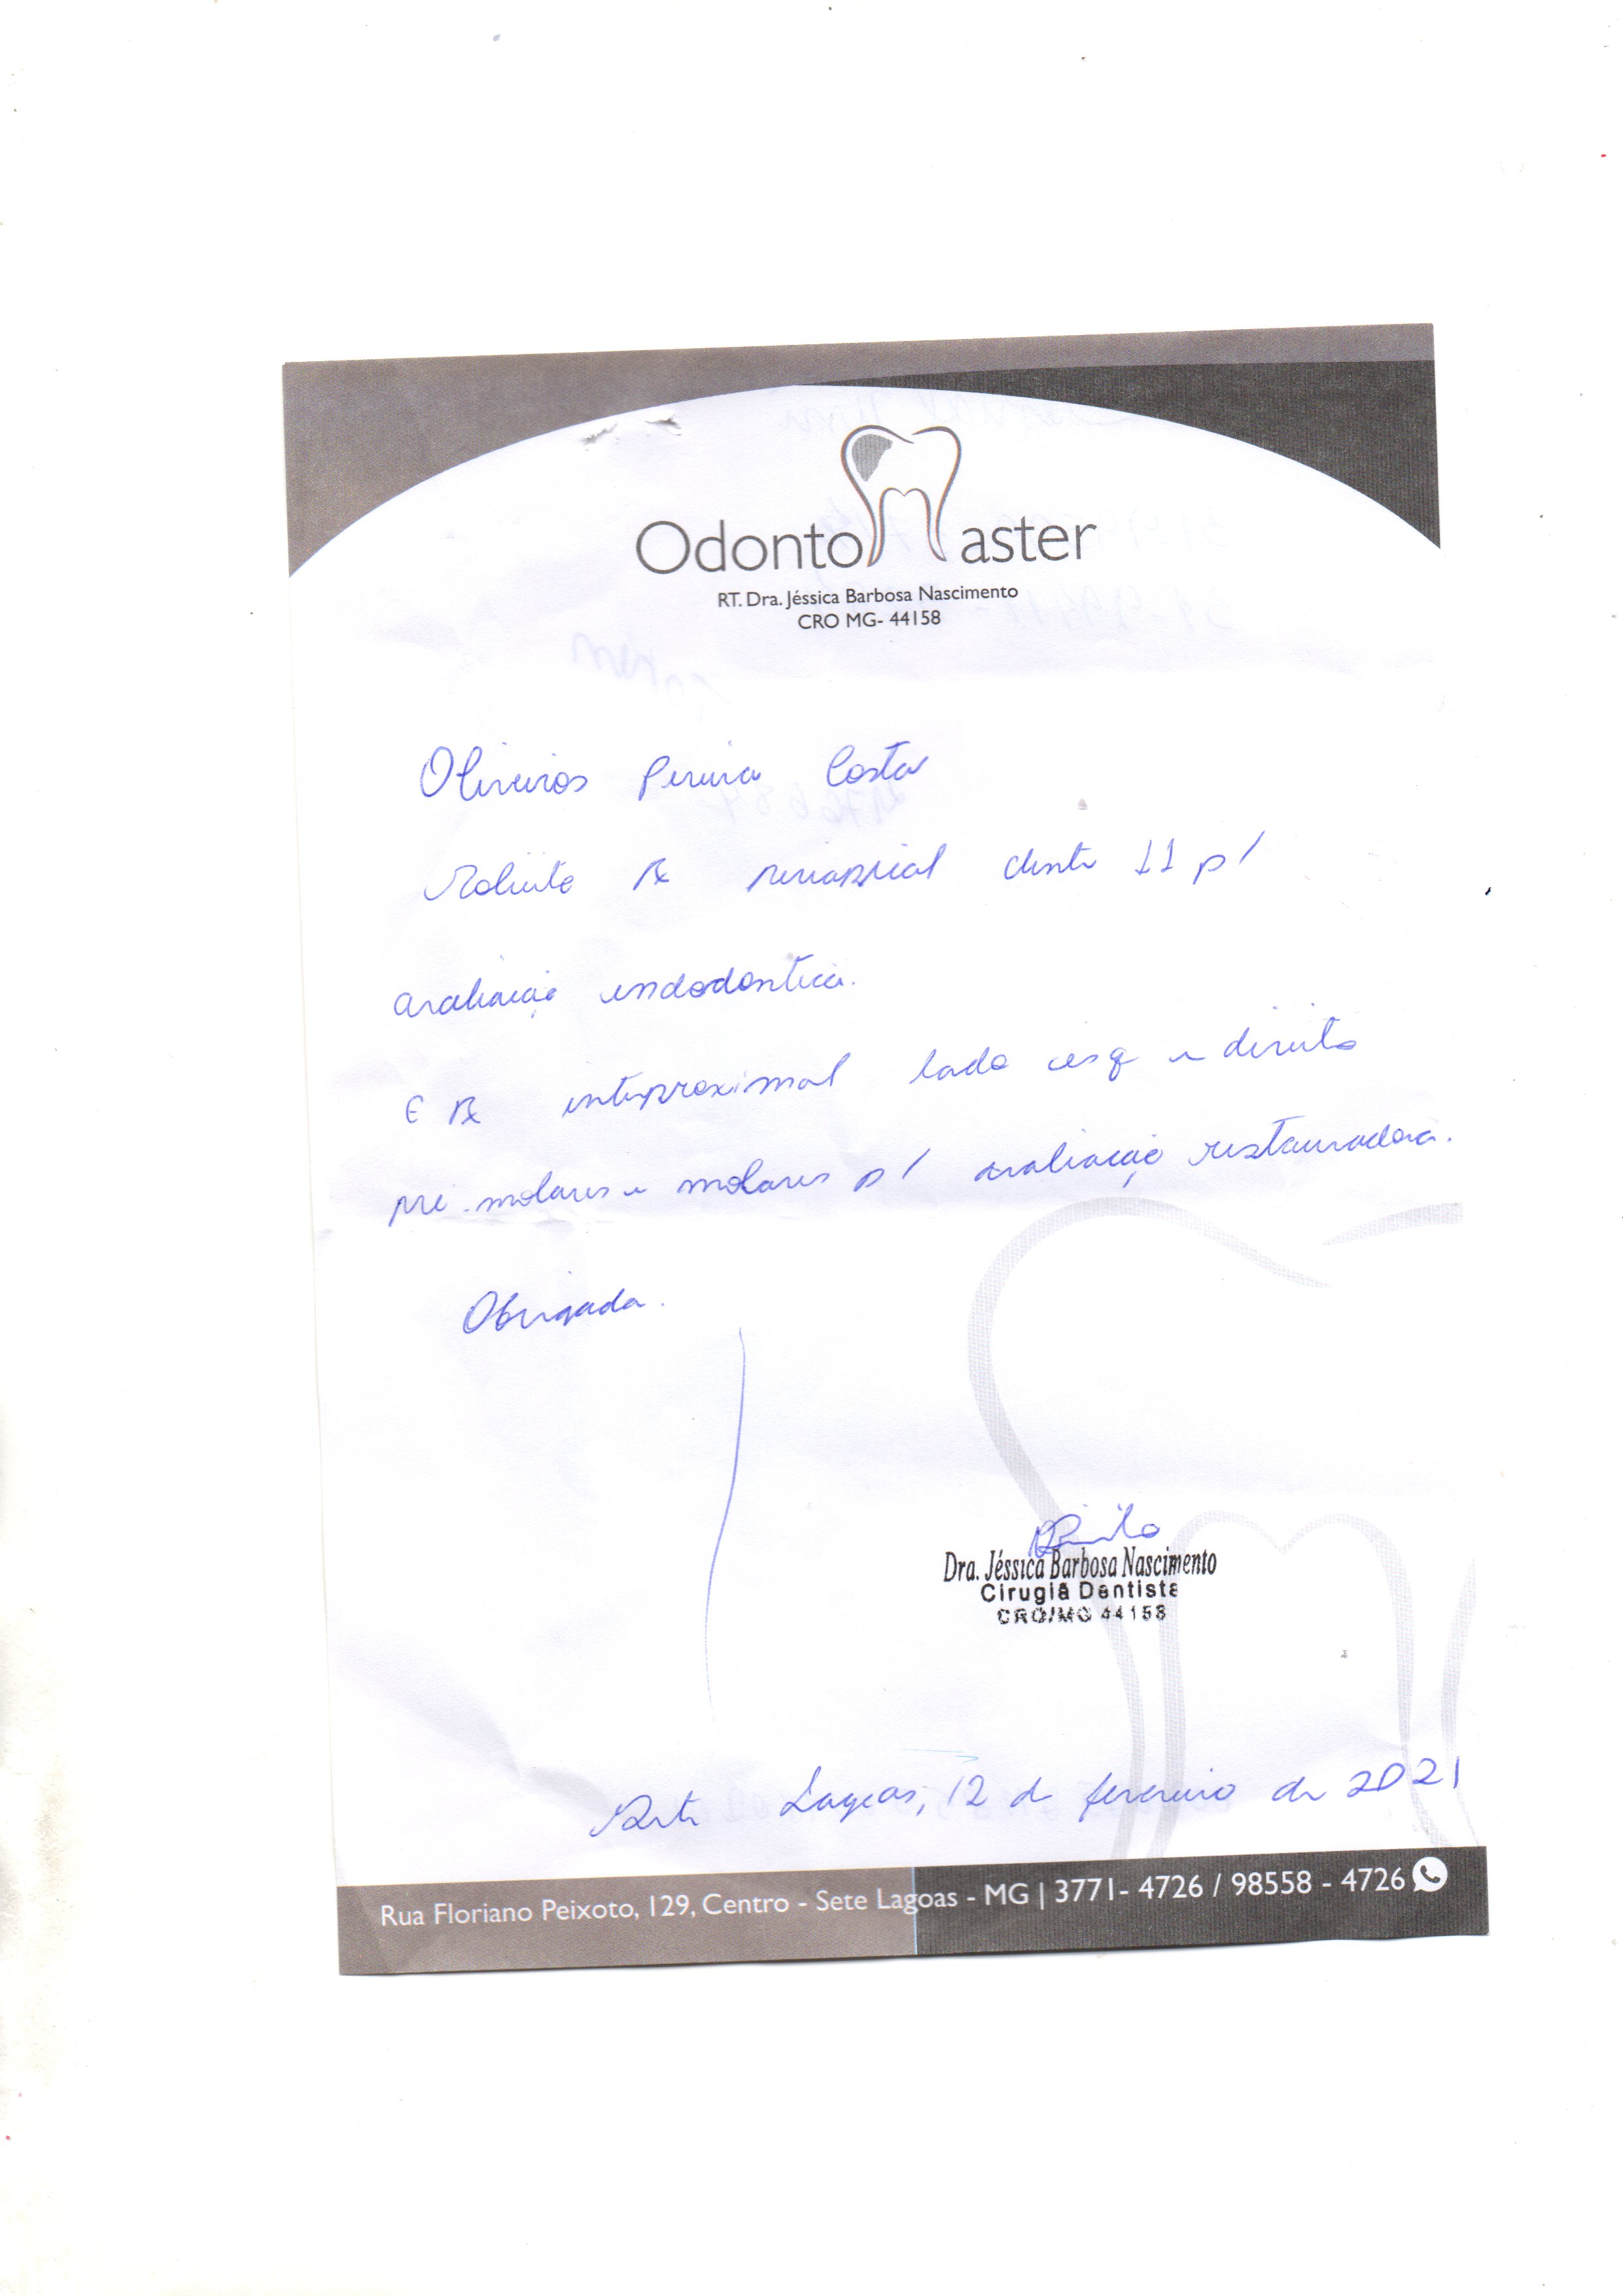 OdontoMaster
RT. Dra. Jéssica Barbosa Nascimento
CRO MG- 44158
Oliveiros Pereira Costa
Solicito Rx periapical dente 11 p/
avaliação endodontica.
E Rx interproximal lado esq e direito
pré-molares e molares p/ avaliação restauradora.
Obrigada.
Dra. Jéssica Barbosa Nascimento
Cirugiã Dentista
CRO/MG 44158
Sete Lagoas, 12 de fevereiro de 2021
Rua Floriano Peixoto, 129, Centro - Sete Lagoas - MG | 3771- 4726 / 98558 - 4726